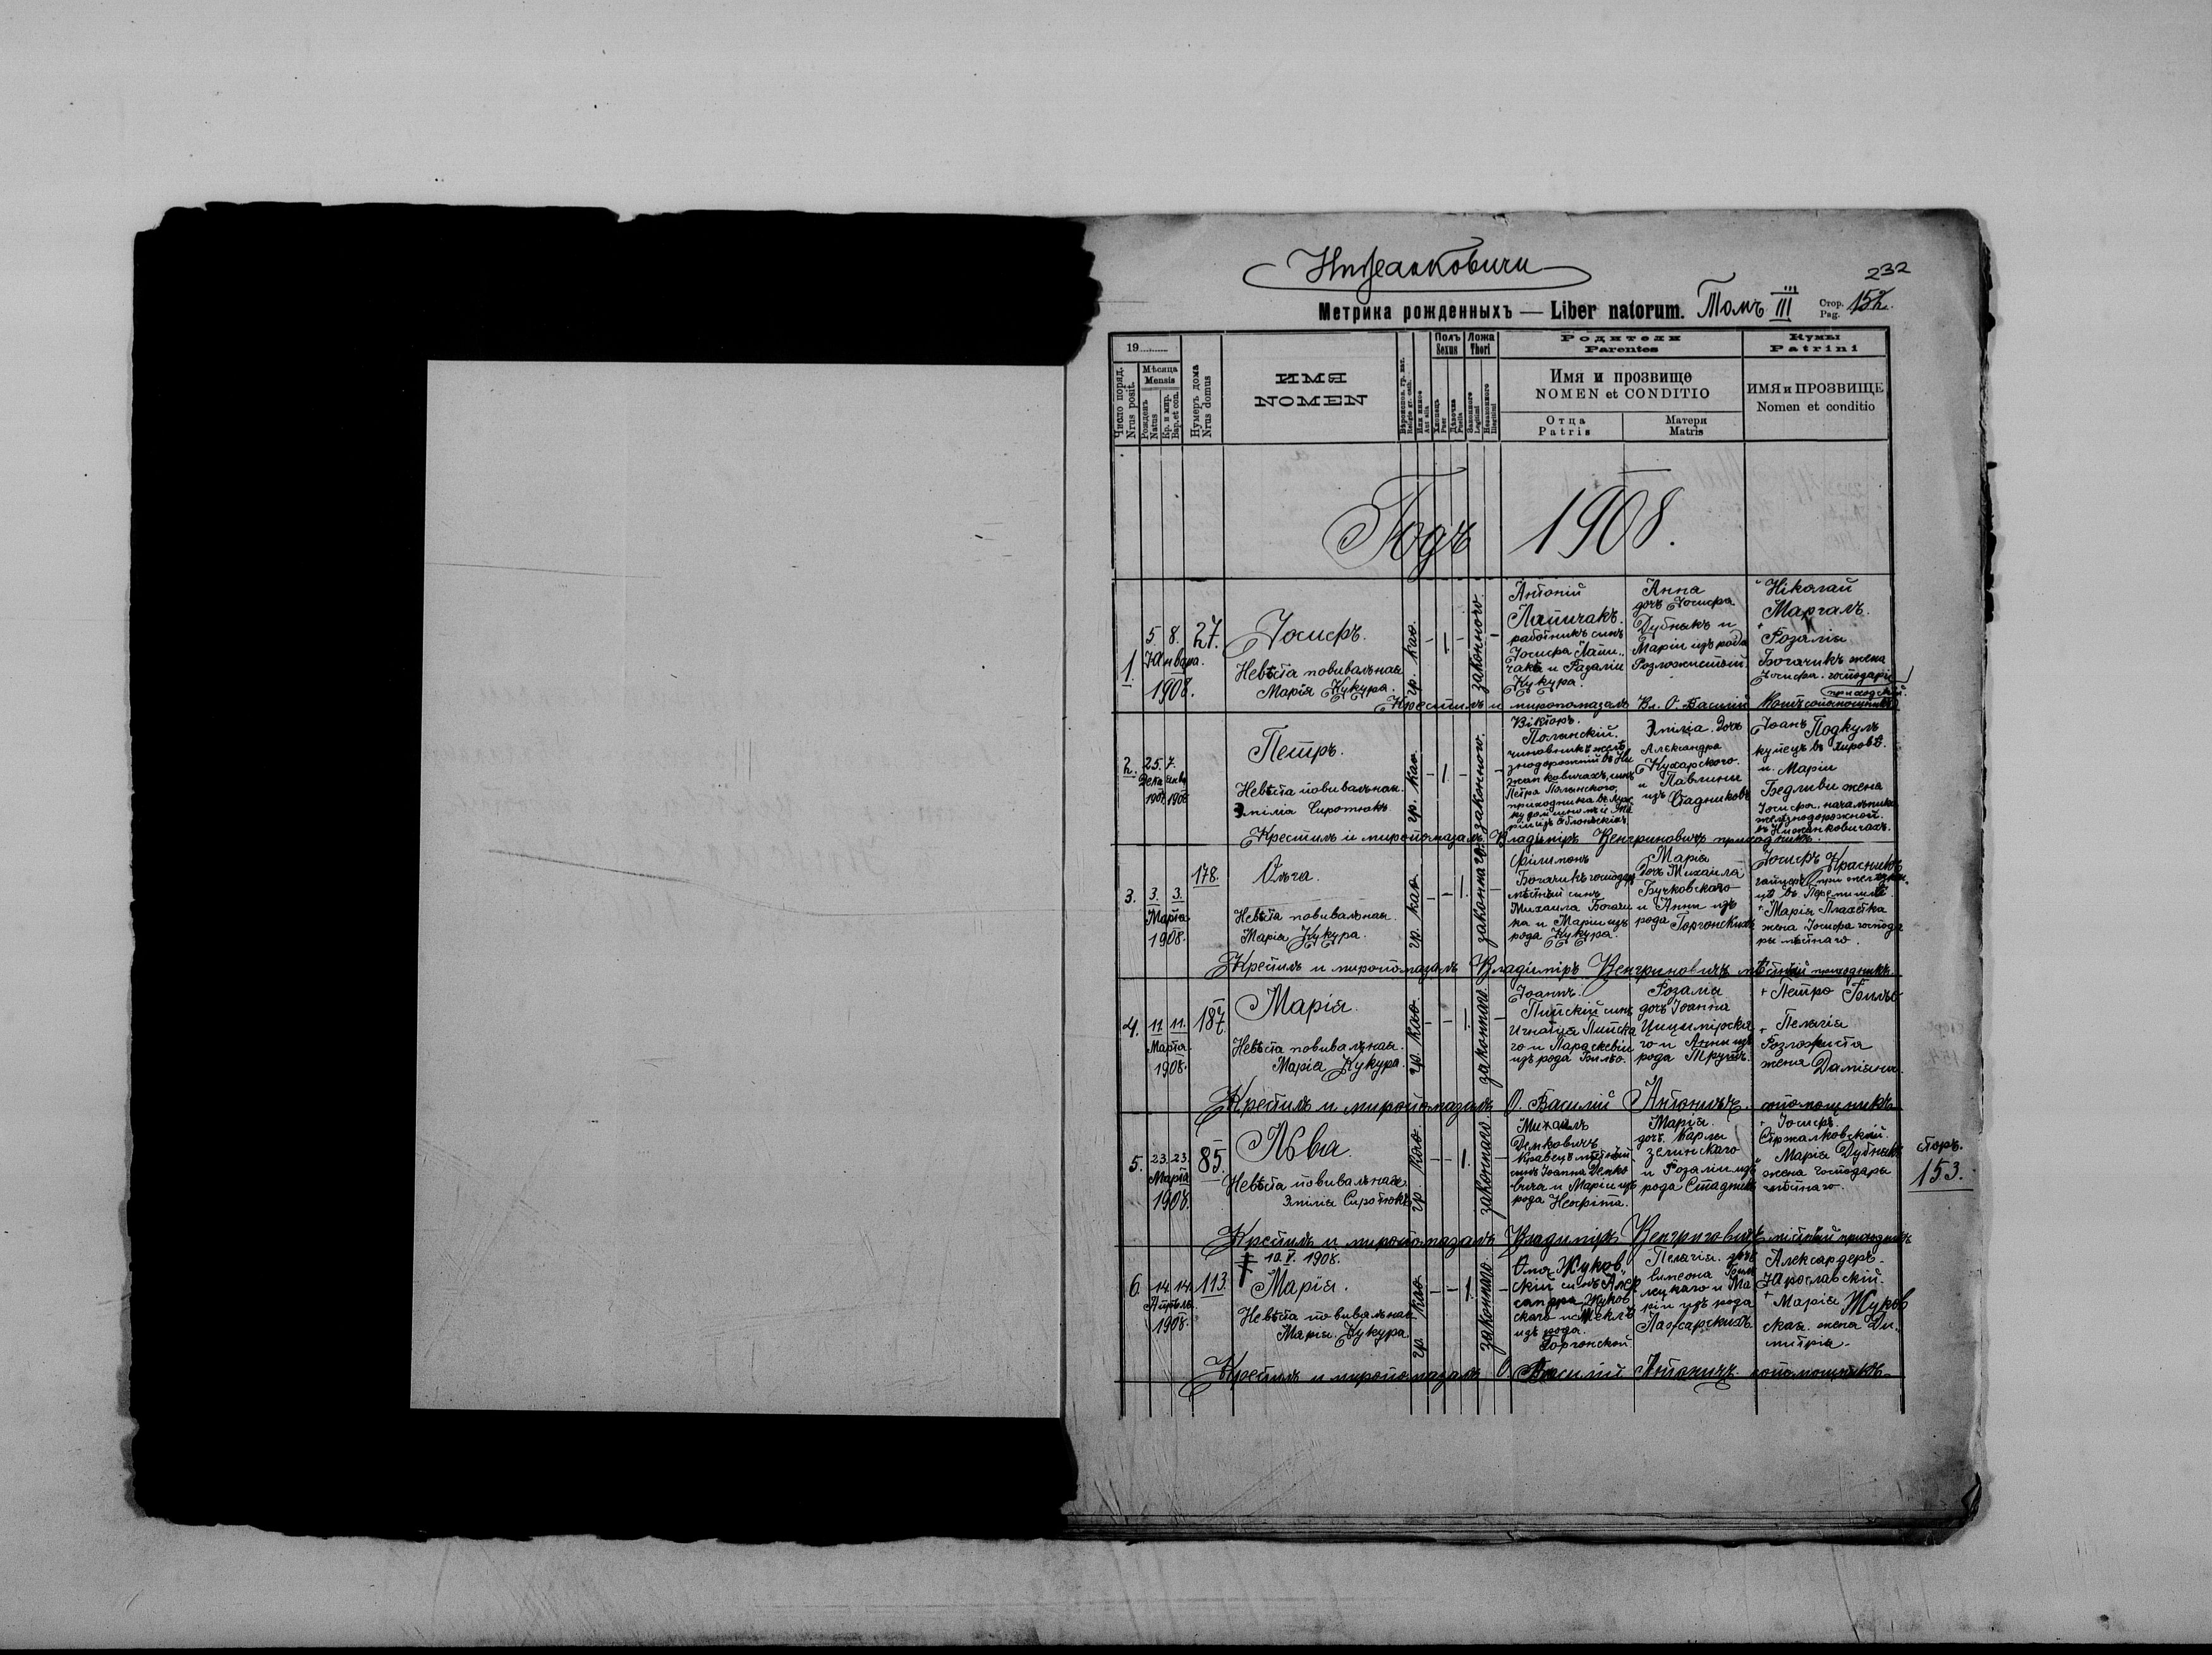 Нижанковичи
232
Метрика рожденныхъ — Liber natorum. Томъ III Стор. Pag. 152.
19
Число поряд. Nrus posit.
Мѣсяца Mensis
Рожденъ Natus
Кр. и мир. Bap. et con.
Нумеръ дома Nrus domus
ИМЯ
NOMEN
Полъ Sexus
Ложа Thori
Родители
Parentes
Имя и прозвище
NOMEN et CONDITIO
Отца
Patris
Матери
Matris
Кумы
Patrini
ИМЯ и ПРОЗВИЩЕ
Nomen et conditio
Годъ 1908.
1. 5 8. Января. 1908. 27.
Іосифъ.
Невѣста повивальная
Марія Кукура.
гр. као. – 1 – законного. –
Антоній
Лапичакъ.
работникъ синъ
Іосифа Лапи-
чака и Розаліи
Кукура.
Анна
дочь Іосифа
Дубнякъ и
Маріи изъ рода
Николай
Маргаль.
+ Розалія
Богачикъ жена
Іосифа. господаря
Крестилъ и миропомазалъ Вл. О. Василій
2. 25. 7. 1908 1908
Петръ.
Невѣста повивальная
Эмілія Сиротюкъ
гр. као. – 1. – законного. –
Вікторъ.
Полянскій.
Петра Полянского,
Эмілія. дочь
Александра
Кухарского.
и Павлини
изъ Стадниковъ
Іоанъ Подкулъ
купецъ въ Хировѣ.
и. Марія
Бедливи жена
Іосифа, начальника
желѣзнодорожной.
въ Нижанковичахъ.
Крестилъ и миропомазалъ Владиміръ Венгриновичъ приходникъ.
3. 3. 3. Марта 1908. 178.
Ольга.
Невѣста повивальная.
Марія Кукура.
гр. као. – – 1. законного –
Филимонъ
Богачикъ господарь
мѣстный синъ
Михаила Богачи
ка и Маріи изъ
рода Кукура.
Марія
дочь Михаила
Бучковского
и Анни изъ
рода Горгонскихъ
Іосифъ Красникъ
въ Перемишлѣ
+ Марія Плахетка
жена Іосифа господа
ры мѣстнаго.
Крестилъ и миропомазалъ Владиміръ Венгриновичъ мѣстный приходникъ.
4. 11 11. Марта 1908. 187.
Марія.
Невѣста повивальная.
Марія Кукура.
гр. као. – – 1. законного. –
Іоаннъ.
Пипскій синъ
Игнатія Пипска
го и Параскевіи
изъ рода Бильо.
Розалія
дочь Іоанна
Цицимірска
го и Анни изъ
рода Трушъ.
+ Петро Бильо
+ Пелагія
жена Даміяна.
Крестилъ и миропомазалъ О. Василій Антоничъ. сопомощникъ
5. 23. 23. Марта 1908. 85.
Ева.
Невѣста повивальная
Эмілія Сиротюкъ
гр. као. – – 1. – законного
Михаилъ
Демковичъ
Кравецъ мѣстный
синъ Іоанна Демко
вича и Маріи изъ
рода Неофіта.
Марія.
дочь Карлы
Зелинского
и Розаліи изъ
рода Стадникъ
+ Іосифъ
Стржалковскій.
Марія Дубнякъ
жена господары
мѣстнаго.
стор. 153.
Крестилъ и миропомазалъ Владиміръ Венгриновичъ містный приходникъ
6. 14. 14. Апрѣля. 1908. 113.
† 10. V. 1908.
Марія.
Невѣста повивальная
Марія. Кукура.
гр. као – – 1. – законного
Жуков
скій синъ Алек
сандра Жуков
ского и Теклѣ
изъ рода.
Горгонской.
Пелагія. дочь
Симеона
и Ма
ріи изъ рода
Пажарскихъ.
Александеръ
Ярославскій.
+ Марія Жуков
ская. жена Ди-
митрія.
Крестилъ и миропомазалъ О. Василій Антоничъ. сопомощникъ.